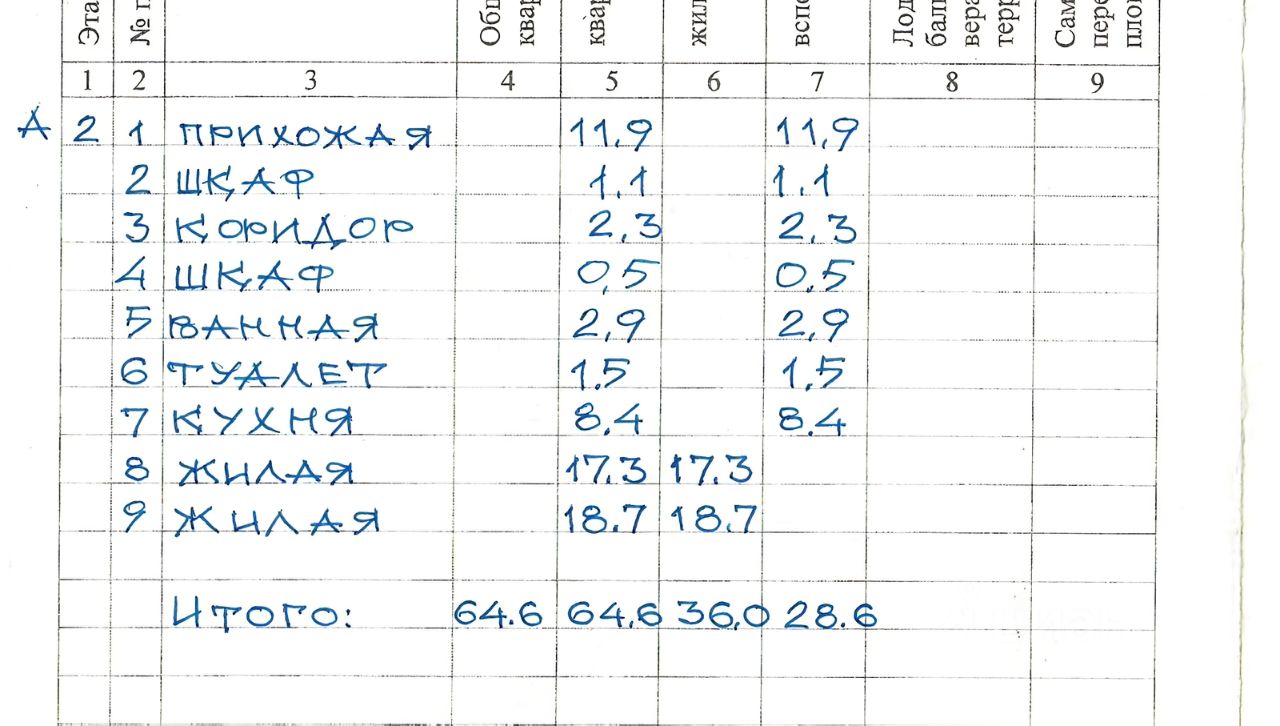 Эта № п Общ квар квар жил вспо Лод балк вера терр Сам пере план
1 2 3 4 5 6 7 8 9
А 2 1 ПРИХОЖАЯ 11,9 11,9
2 ШКАФ 1,1 1,1
3 КОРИДОР 2,3 2,3
4 ШКАФ 0,5 0,5
5 ВАННАЯ 2,9 2,9
6 ТУАЛЕТ 1,5 1,5
7 КУХНЯ 8,4 8.4
8 ЖИЛАЯ 17,3 17,3
9 ЖИЛАЯ 18.7 18.7
Итого: 64.6 64,6 36,0 28.6